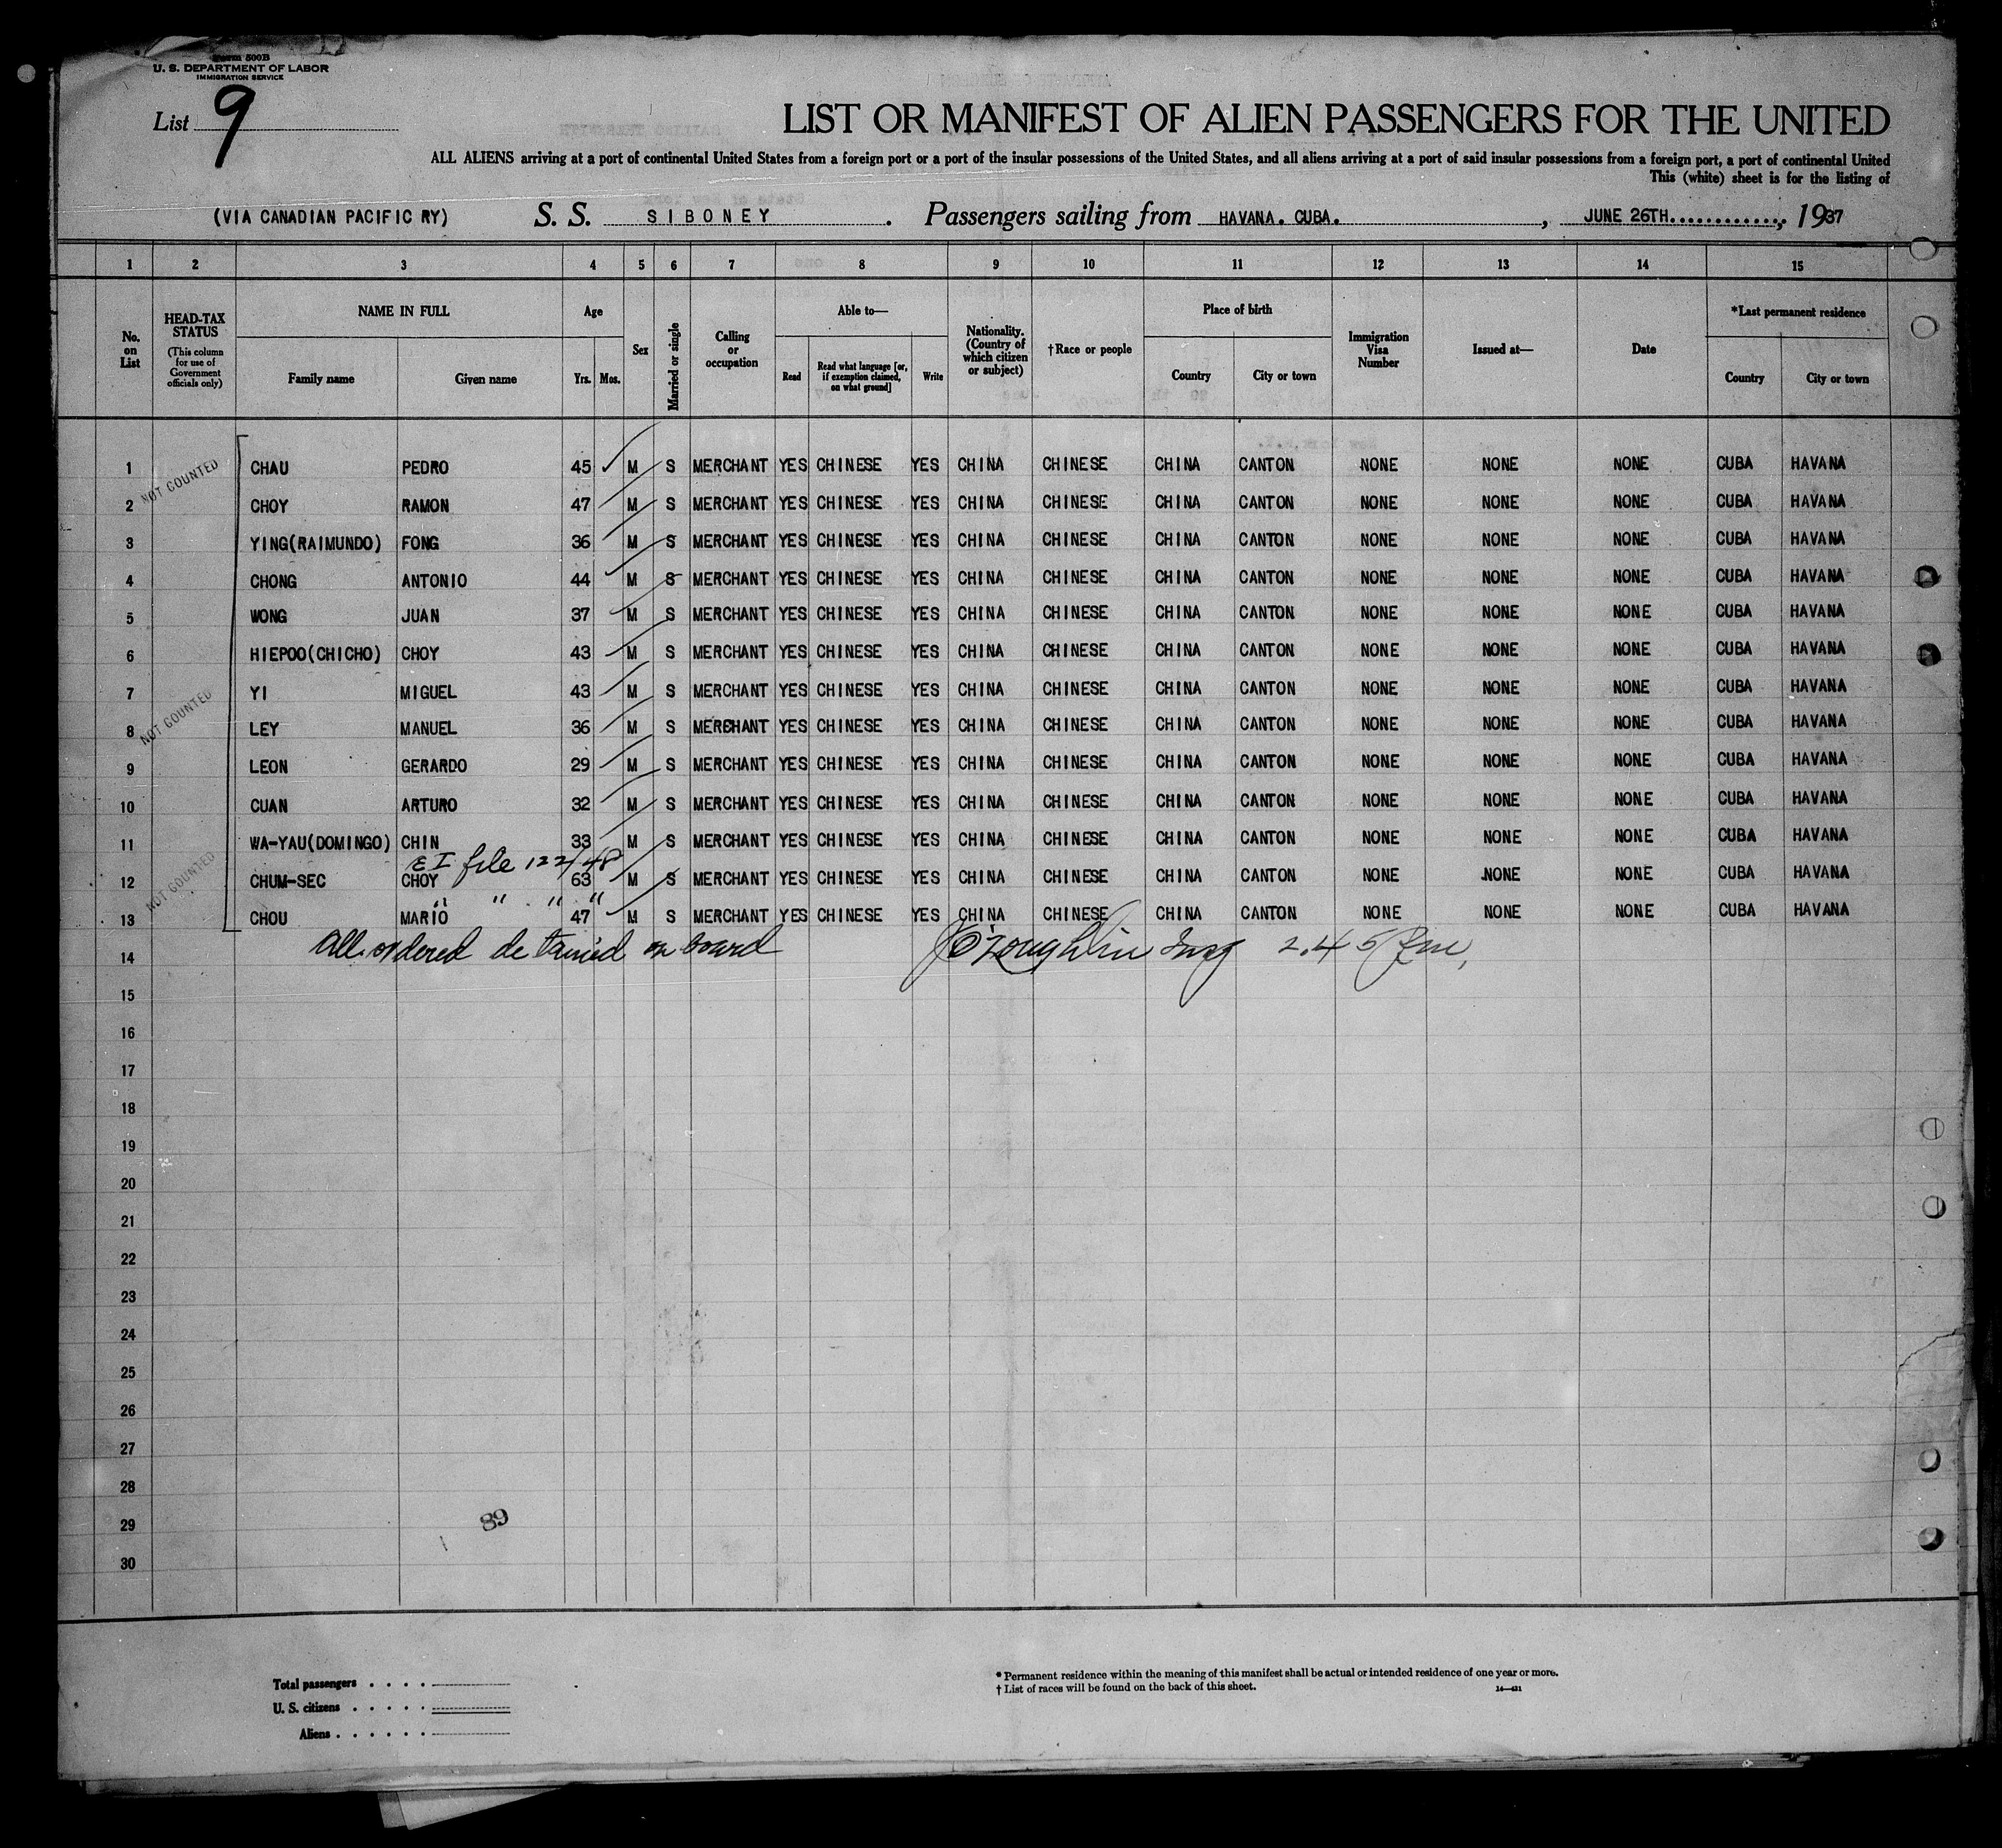 Form 500B
U. S. DEPARTMENT OF LABOR
IMMIGRATION SERVICE
List 9
LIST OR MANIFEST OF ALIEN PASSENGERS FOR THE UNITED
ALL ALIENS arriving at a port of continental United States from a foreign port or a port of the insular possessions of the United States, and all aliens arriving at a port of said insular possessions from a foreign port, a port of continental United
This (white) sheet is for the listing of
(VIA CANADIAN PACIFIC RY) S. S. SIBONEY . Passengers sailing from HAVANA. CUBA. , JUNE 26TH............., 1937
1 2 3 4 5 6 7 8 9 10 11 12 13 14 15
No. on List
HEAD-TAX STATUS (This column for use of Government officials only)
NAME IN FULL
Family name Given name
Age
Yrs. Mos.
Sex
Married or single
Calling or occupation
Able to—
Read Read what language [or, if exemption claimed, on what ground] Write
Nationality. (Country of which citizen or subject)
†Race or people
Place of birth
Country City or town
Immigration Visa Number
Issued at—
Date
*Last permanent residence
Country City or town
1 CHAU PEDRO 45 M S MERCHANT YES CHINESE YES CHINA CHINESE CHINA CANTON NONE NONE NONE CUBA HAVANA
NOT COUNTED
2 CHOY RAMON 47 M S MERCHANT YES CHINESE YES CHINA CHINESE CHINA CANTON NONE NONE NONE CUBA HAVANA
3 YING(RAIMUNDO) FONG 36 M S MERCHANT YES CHINESE YES CHINA CHINESE CHINA CANTON NONE NONE NONE CUBA HAVANA
4 CHONG ANTONIO 44 M S MERCHANT YES CHINESE YES CHINA CHINESE CHINA CANTON NONE NONE NONE CUBA HAVANA
5 WONG JUAN 37 M S MERCHANT YES CHINESE YES CHINA CHINESE CHINA CANTON NONE NONE NONE CUBA HAVANA
6 HIEPOO(CHICHO) CHOY 43 M S MERCHANT YES CHINESE YES CHINA CHINESE CHINA CANTON NONE NONE NONE CUBA HAVANA
7 YI MIGUEL 43 M S MERCHANT YES CHINESE YES CHINA CHINESE CHINA CANTON NONE NONE NONE CUBA HAVANA
NOT COUNTED
8 LEY MANUEL 36 M S MERCHANT YES CHINESE YES CHINA CHINESE CHINA CANTON NONE NONE NONE CUBA HAVANA
9 LEON GERARDO 29 M S MERCHANT YES CHINESE YES CHINA CHINESE CHINA CANTON NONE NONE NONE CUBA HAVANA
10 CUAN ARTURO 32 M S MERCHANT YES CHINESE YES CHINA CHINESE CHINA CANTON NONE NONE NONE CUBA HAVANA
11 WA-YAU(DOMINGO) CHIN 33 M S MERCHANT YES CHINESE YES CHINA CHINESE CHINA CANTON NONE NONE NONE CUBA HAVANA
EI file 122/48
12 CHUM-SEC CHOY 63 M S MERCHANT YES CHINESE YES CHINA CHINESE CHINA CANTON NONE NONE NONE CUBA HAVANA
NOT COUNTED
" " " "
13 CHOU MARIO 47 M S MERCHANT YES CHINESE YES CHINA CHINESE CHINA CANTON NONE NONE NONE CUBA HAVANA
14 All ordered detained on board O'Loughlin Insp 2.45 Pm,
15
16
17
18
19
20
21
22
23
24
25
26
27
28
29
89
30
Total passengers . . . .
U. S. citizens . . . . .
Aliens . . . . . .
* Permanent residence within the meaning of this manifest shall be actual or intended residence of one year or more.
† List of races will be found on the back of this sheet.